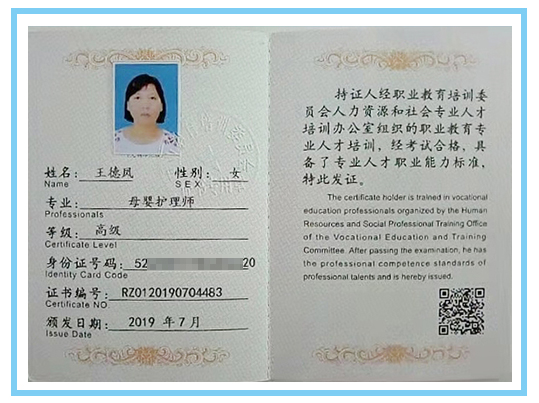 姓名：王德凤 性别：女
Name SEX
专业：母婴护理师
Professionals
等级：高级
Certificate Level
身份证号码：52 20
Identity Card Code
证书编号：RZ0120190704483
Certificate NO.
颁发日期：2019 年 7 月
Issue Date
持证人经职业教育培训委
员会人力资源和社会专业人才
培训办公室组织的职业教育专
业人才培训，经考试合格，具
备了专业人才职业能力标准，
特此发证。
The certificate holder is trained in vocational
education professionals organized by the Human
Resources and Social Professional Training Office
of the Vocational Education and Training
Committee. After passing the examination, he has
the professional competence standards of
professional talents and is hereby issued.